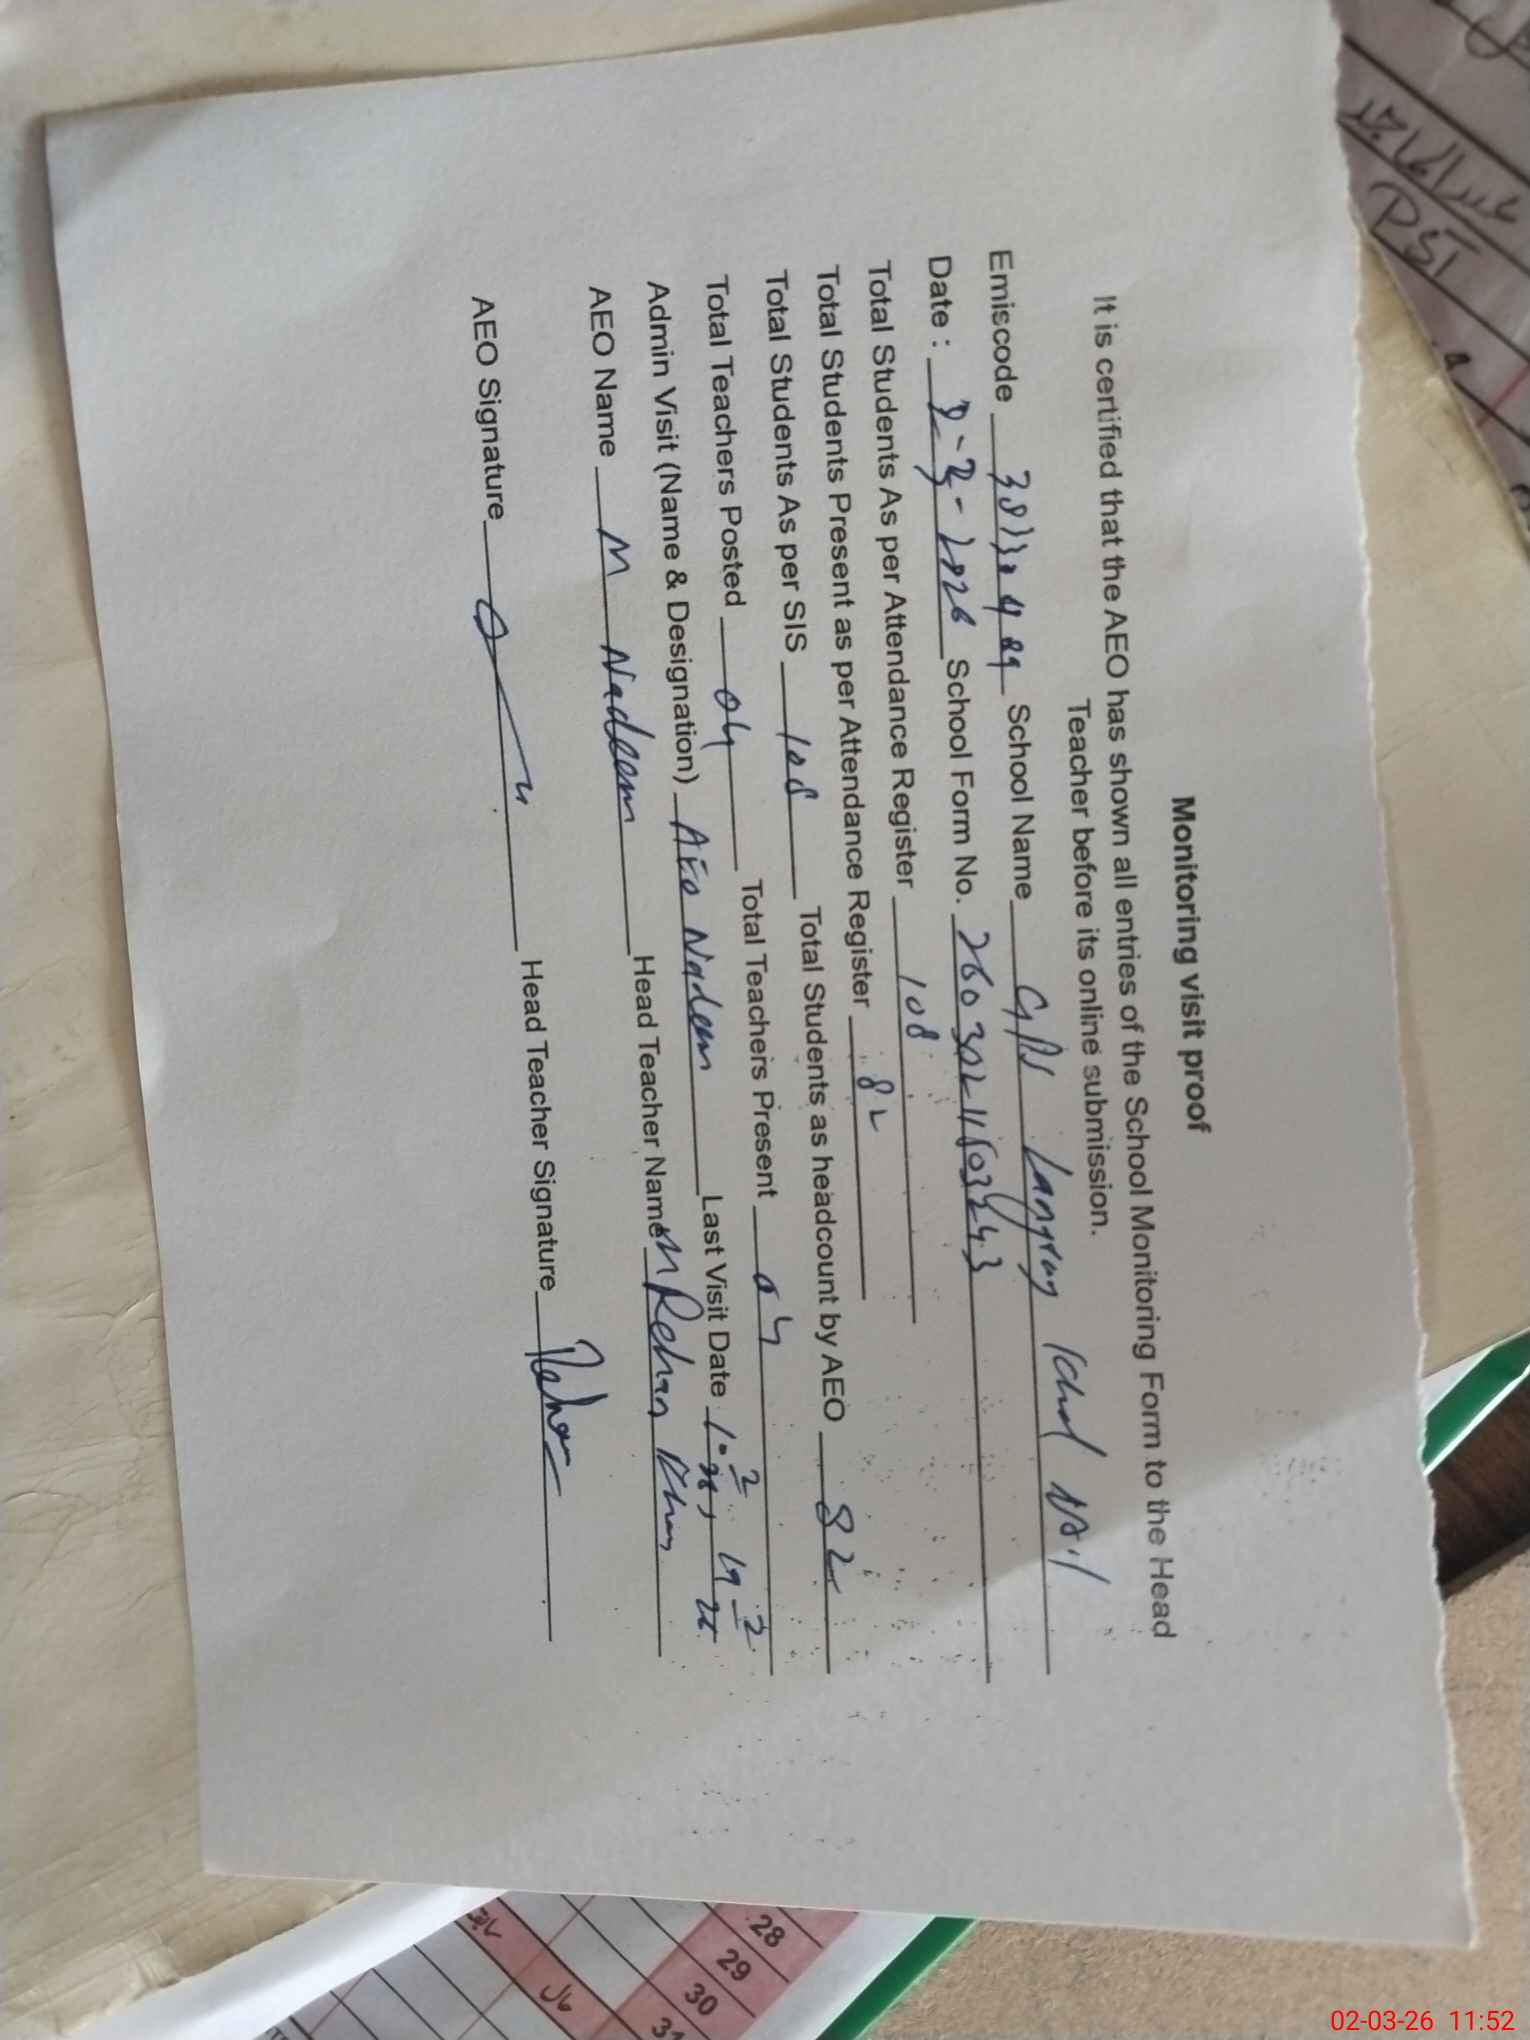 Monitoring visit proof
It is certified that the AEO has shown all entries of the School Monitoring Form to the Head
Teacher before its online submission.
Emiscode School Name GPS Wali
Date : 2-3-2026 School Form No.
Total Students As per Attendance Register 108
Total Students Present as per Attendance Register 82
Total Students As per SIS 108 Total Students as headcount by AEO 82
Total Teachers Posted 04 Total Teachers Present 04
Admin Visit (Name & Designation) AEO Nadeem Last Visit Date
AEO Name M Nadeem Head Teacher Name M Rehan Khan
AEO Signature Head Teacher Signature Rehan
PST
28
29
30
31
02-03-26 11:52